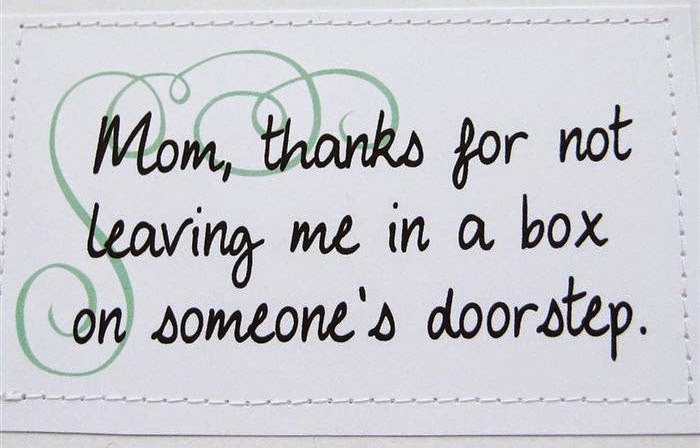 Mom, thanks for not
leaving me in a box
on someone's doorstep.